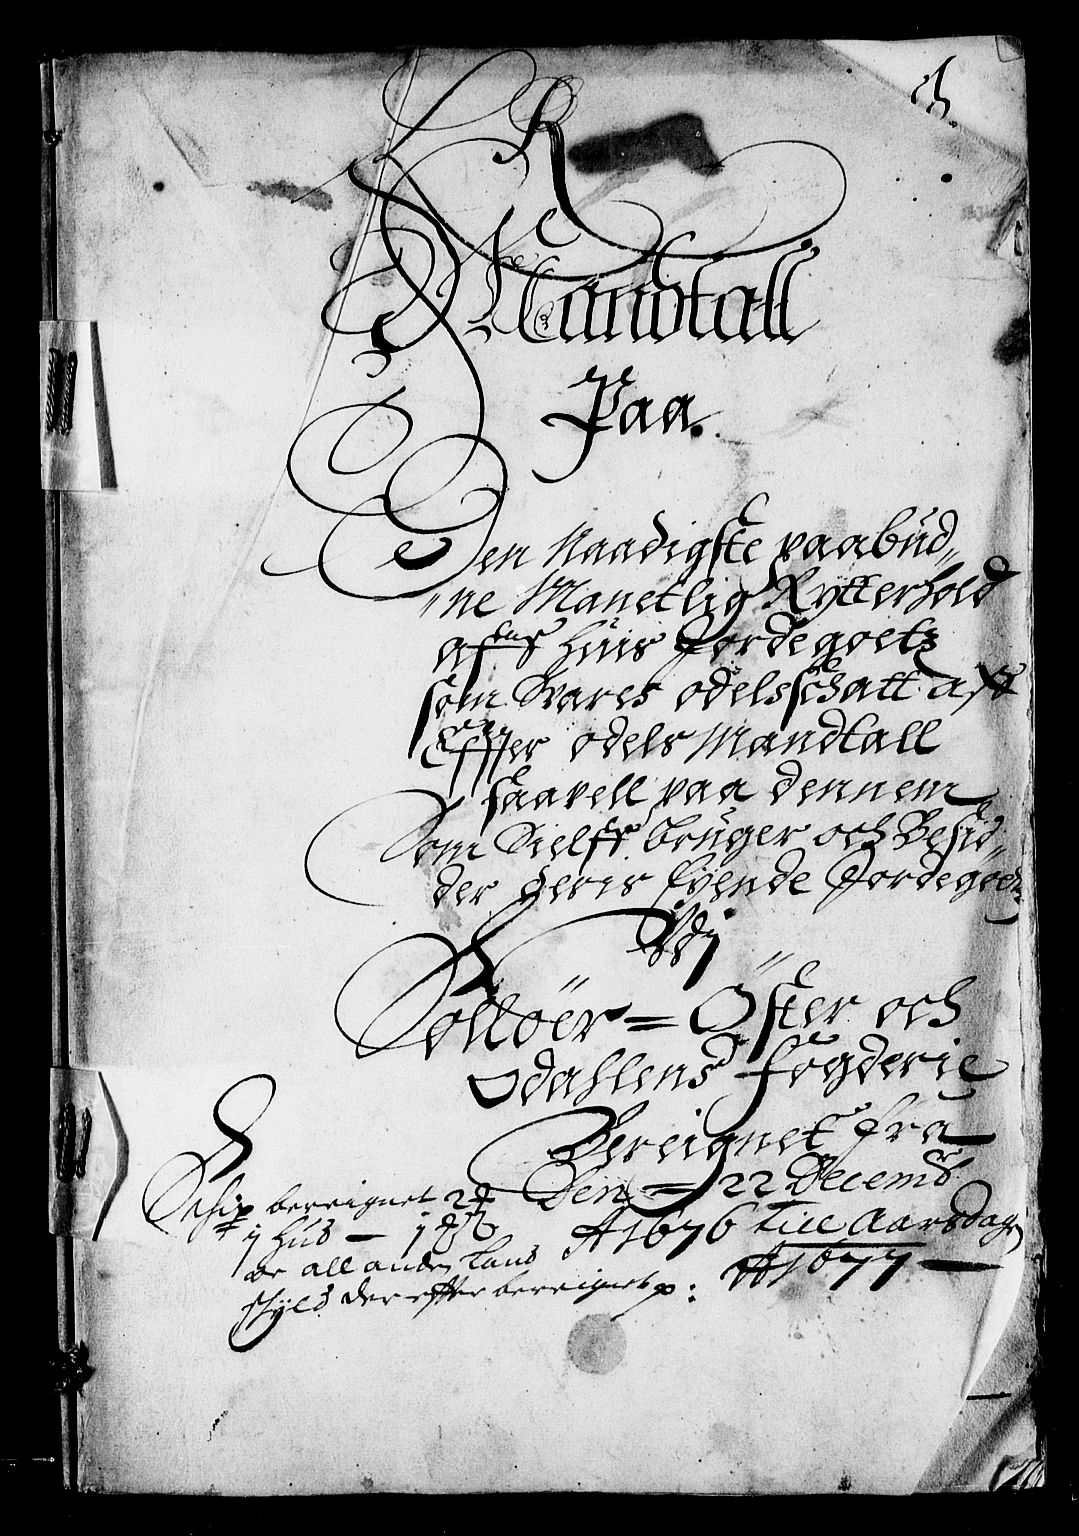 R
Mandtall
Paa
Den Naadigste paabud„
„ne Manetlig Rytterhold
aff huis Jordegoetz
som Svares odelsschatt aff
Effter odels Mandtall
saavell paa dennem
Som Sielff bruger och Besid„
der deris Eyende Jordegoetz
Vdj
Solløer = Öster och
Odahlens fogderie
Bereignet fra
Den = 22 Decemb
A 1676 till Aarsdag
A 1677
Schip bereignet 2
j hus — 1
oc all anden land
schyld der effter bereignet